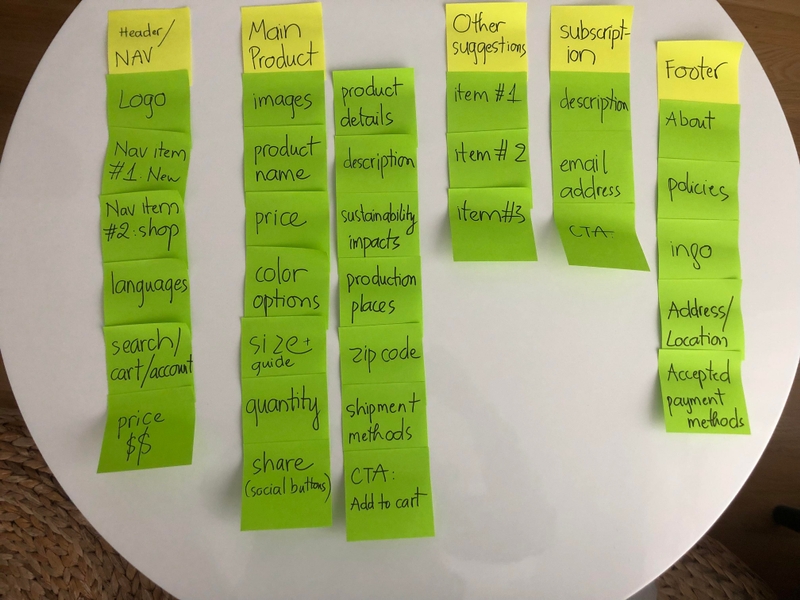 Header/
NAV
Logo
Nav item
#1: New
Nav Item
#2: shop
languages
search/
cart/account
price
$$
Main
Product
images
product
name
price
color
options
size+
guide
quantity
share
(social buttons)
product
details
description
sustainability
impacts
production
places
zip code
shipment
methods
CTA:
Add to cart
Other
suggestions
item #1
item # 2
item#3
subscript-
ion
description
email
address
CTA:
Footer
About
policies
ingo
Address/
Location
Accepted
payment
methods